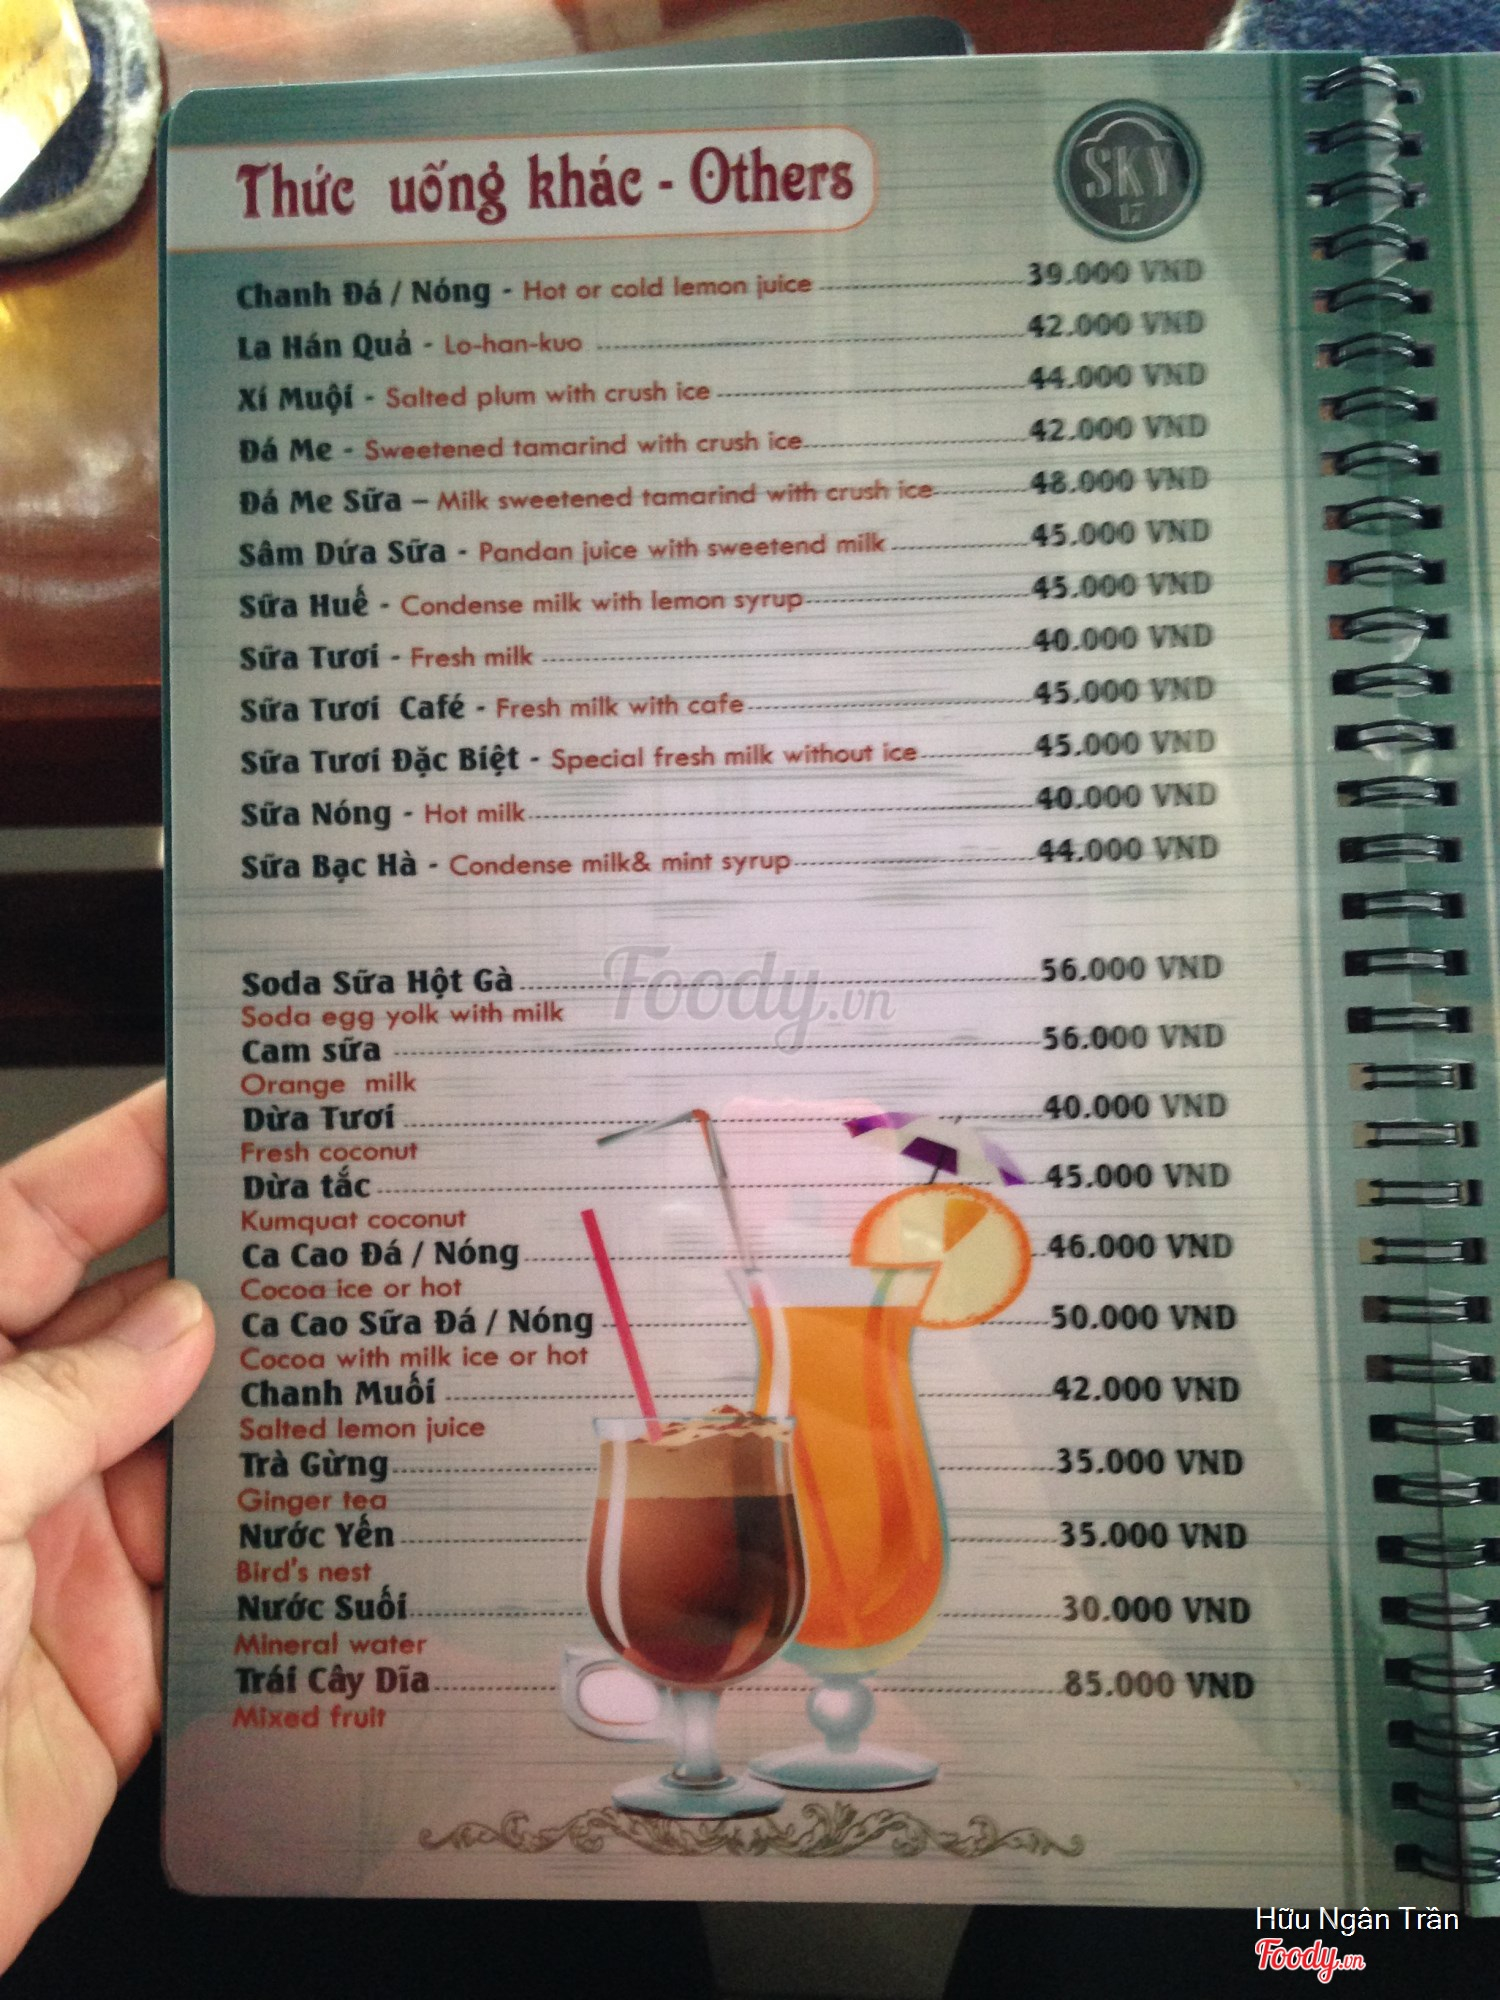 Thức uống khác - Others
SKY
17
Chanh Đá / Nóng - Hot or cold lemon juice 39.000 VND
La Hán Quả - Lo-han-kuo 42.000 VND
Xí Muội - Salted plum with crush ice 44.000 VND
Đá Me - Sweetened tamarind with crush ice 42.000 VND
Đá Me Sữa – Milk sweetened tamarind with crush ice 48.000 VND
Sâm Dứa Sữa - Pandan juice with sweetend milk 45.000 VND
Sữa Huế - Condense milk with lemon syrup 45.000 VND
Sữa Tươi - Fresh milk 40.000 VND
Sữa Tươi Café - Fresh milk with cafe 45.000 VND
Sữa Tươi Đặc Biệt - Special fresh milk without ice 45.000 VND
Sữa Nóng - Hot milk 40.000 VND
Sữa Bạc Hà - Condense milk& mint syrup 44.000 VND
Soda Sữa Hột Gà 56.000 VND
Soda egg yolk with milk
Cam sữa 56.000 VND
Orange milk
Dừa Tươi 40.000 VND
Fresh coconut
Dừa tắc 45.000 VND
Kumquat coconut
Ca Cao Đá / Nóng 46.000 VND
Cocoa ice or hot
Ca Cao Sữa Đá / Nóng 50.000 VND
Cocoa with milk ice or hot
Chanh Muối 42.000 VND
Salted lemon juice
Trà Gừng 35.000 VND
Ginger tea
Nước Yến 35.000 VND
Bird's nest
Nước Suối 30.000 VND
Mineral water
Trái Cây Dĩa 85.000 VND
Mixed fruit
Foody.vn
Hữu Ngân Trần
Foody.vn